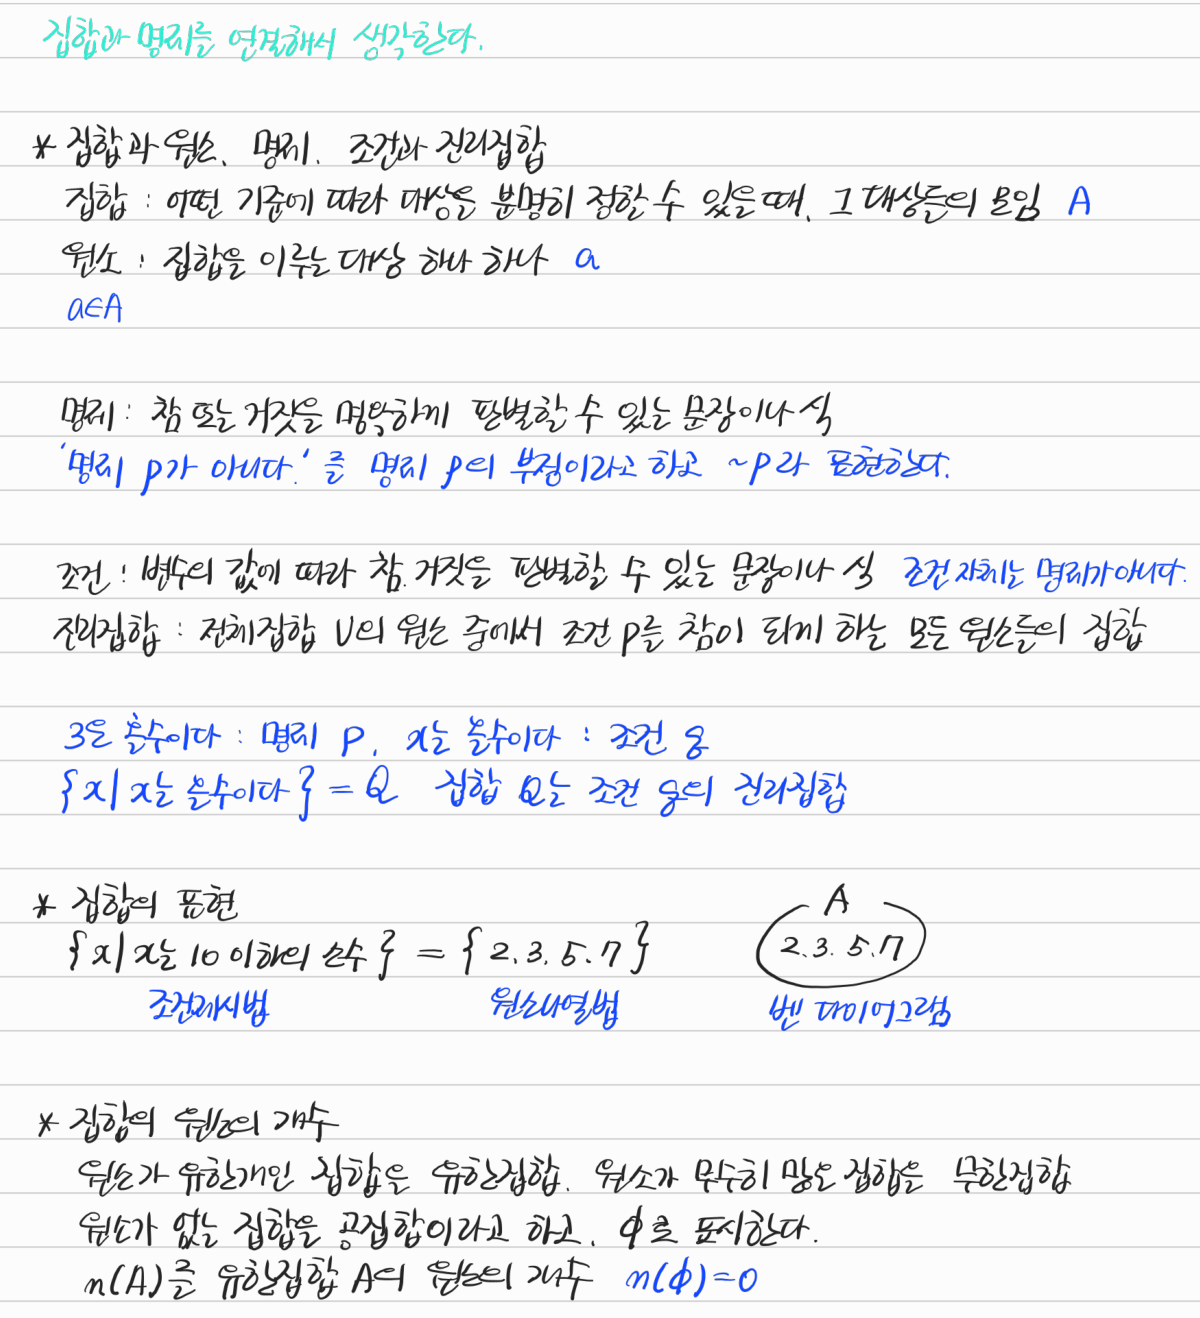 집합과 명제를 연결해서 생각한다.
* 집합과 원소, 명제, 조건과 진리집합
집합 : 어떤 기준에 따라 대상을 분명히 정할 수 있을 때, 그 대상들의 모임 A
원소 : 집합을 이루는 대상 하나 하나 a
a∈A
명제 : 참 또는 거짓을 명확하게 판별할 수 있는 문장이나 식
'명제 p가 아니다.'를 명제 p의 부정이라고 하고 ~p라 표현한다.
조건 : 변수의 값에 따라 참, 거짓을 판별할 수 있는 문장이나 식 조건 자체는 명제가 아니다.
진리집합 : 전체집합 U의 원소 중에서 조건 p를 참이 되게 하는 모든 원소들의 집합
3은 홀수이다 : 명제 p, x는 홀수이다 : 조건 q
{x|x는 홀수이다} = Q 집합 Q는 조건 q의 진리집합
* 집합의 표현
{x|x는 10 이하의 소수} = {2, 3, 5, 7} A 2, 3, 5, 7
조건제시법 원소나열법 벤 다이어그램
* 집합의 원소의 개수
원소가 유한개인 집합은 유한집합, 원소가 무수히 많은 집합은 무한집합
원소가 없는 집합을 공집합이라고 하고, ϕ로 표시한다.
n(A)를 유한집합 A의 원소의 개수 n(ϕ)=0